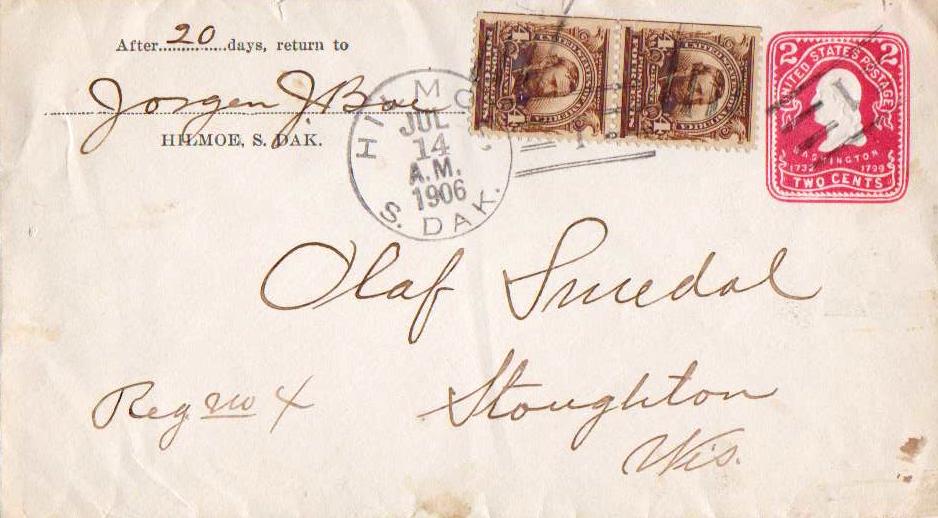 After 20 days, return to
Jorgen J. Boe
HILMOE, S. DAK.
HILMO
S. DAK.
JUL
14
A.M.
1906
UNITED STATES POSTAGE
2 2
WASHINGTON
1732 1799
TWO CENTS
Olaf Smedal
Reg no 4
Stoughton
Wis.